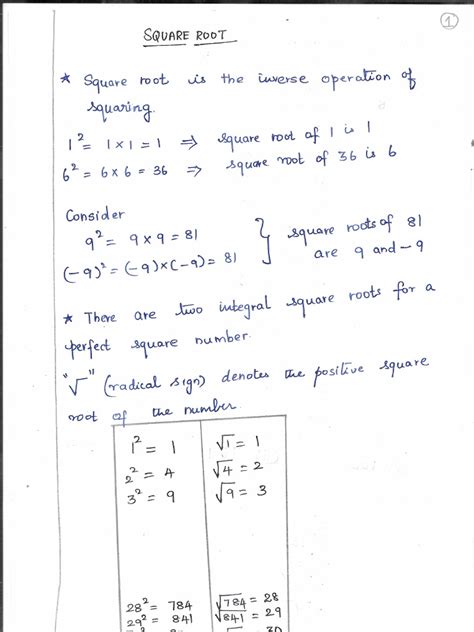 1
SQUARE ROOT
* Square root is the inverse operation of
squaring.
1² = 1 × 1 = 1 ⇒ square root of 1 is 1
6² = 6 × 6 = 36 ⇒ square root of 36 is 6
Consider
9² = 9 × 9 = 81
(-9)² = (-9) × (-9) = 81
} square roots of 81
are 9 and -9
* There are two integral square roots for a
perfect square number.
"√" (radical sign) denotes the positive square
root of the number.
1² = 1 √1 = 1
2² = 4 √4 = 2
3² = 9 √9 = 3
28² = 784 √784 = 28
29² = 841 √841 = 29